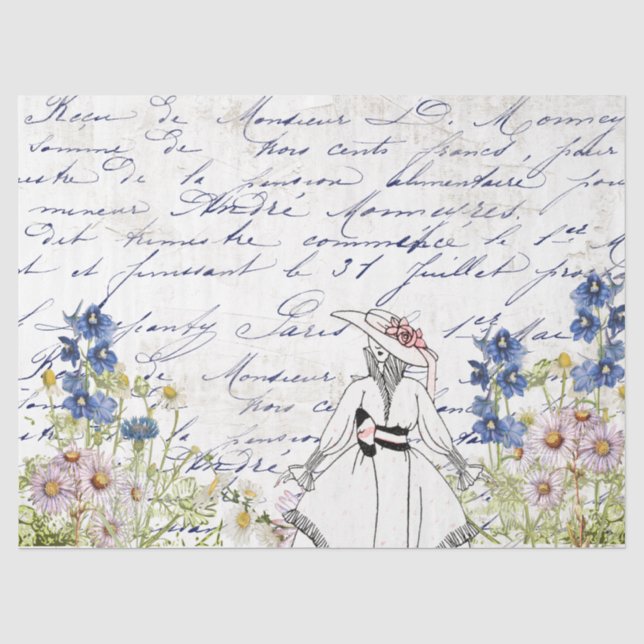 Reçu de Monsieur D. Monney
somme de trois cents francs, pour
estre de la pension alimentaire pou
mineur André Monneyres.
Dit trimestre commence le 1er M
st et finissant le 31 Juillet pro
Paris 1er Mai
Reçu de Monsieur
trois cen
la pension
André